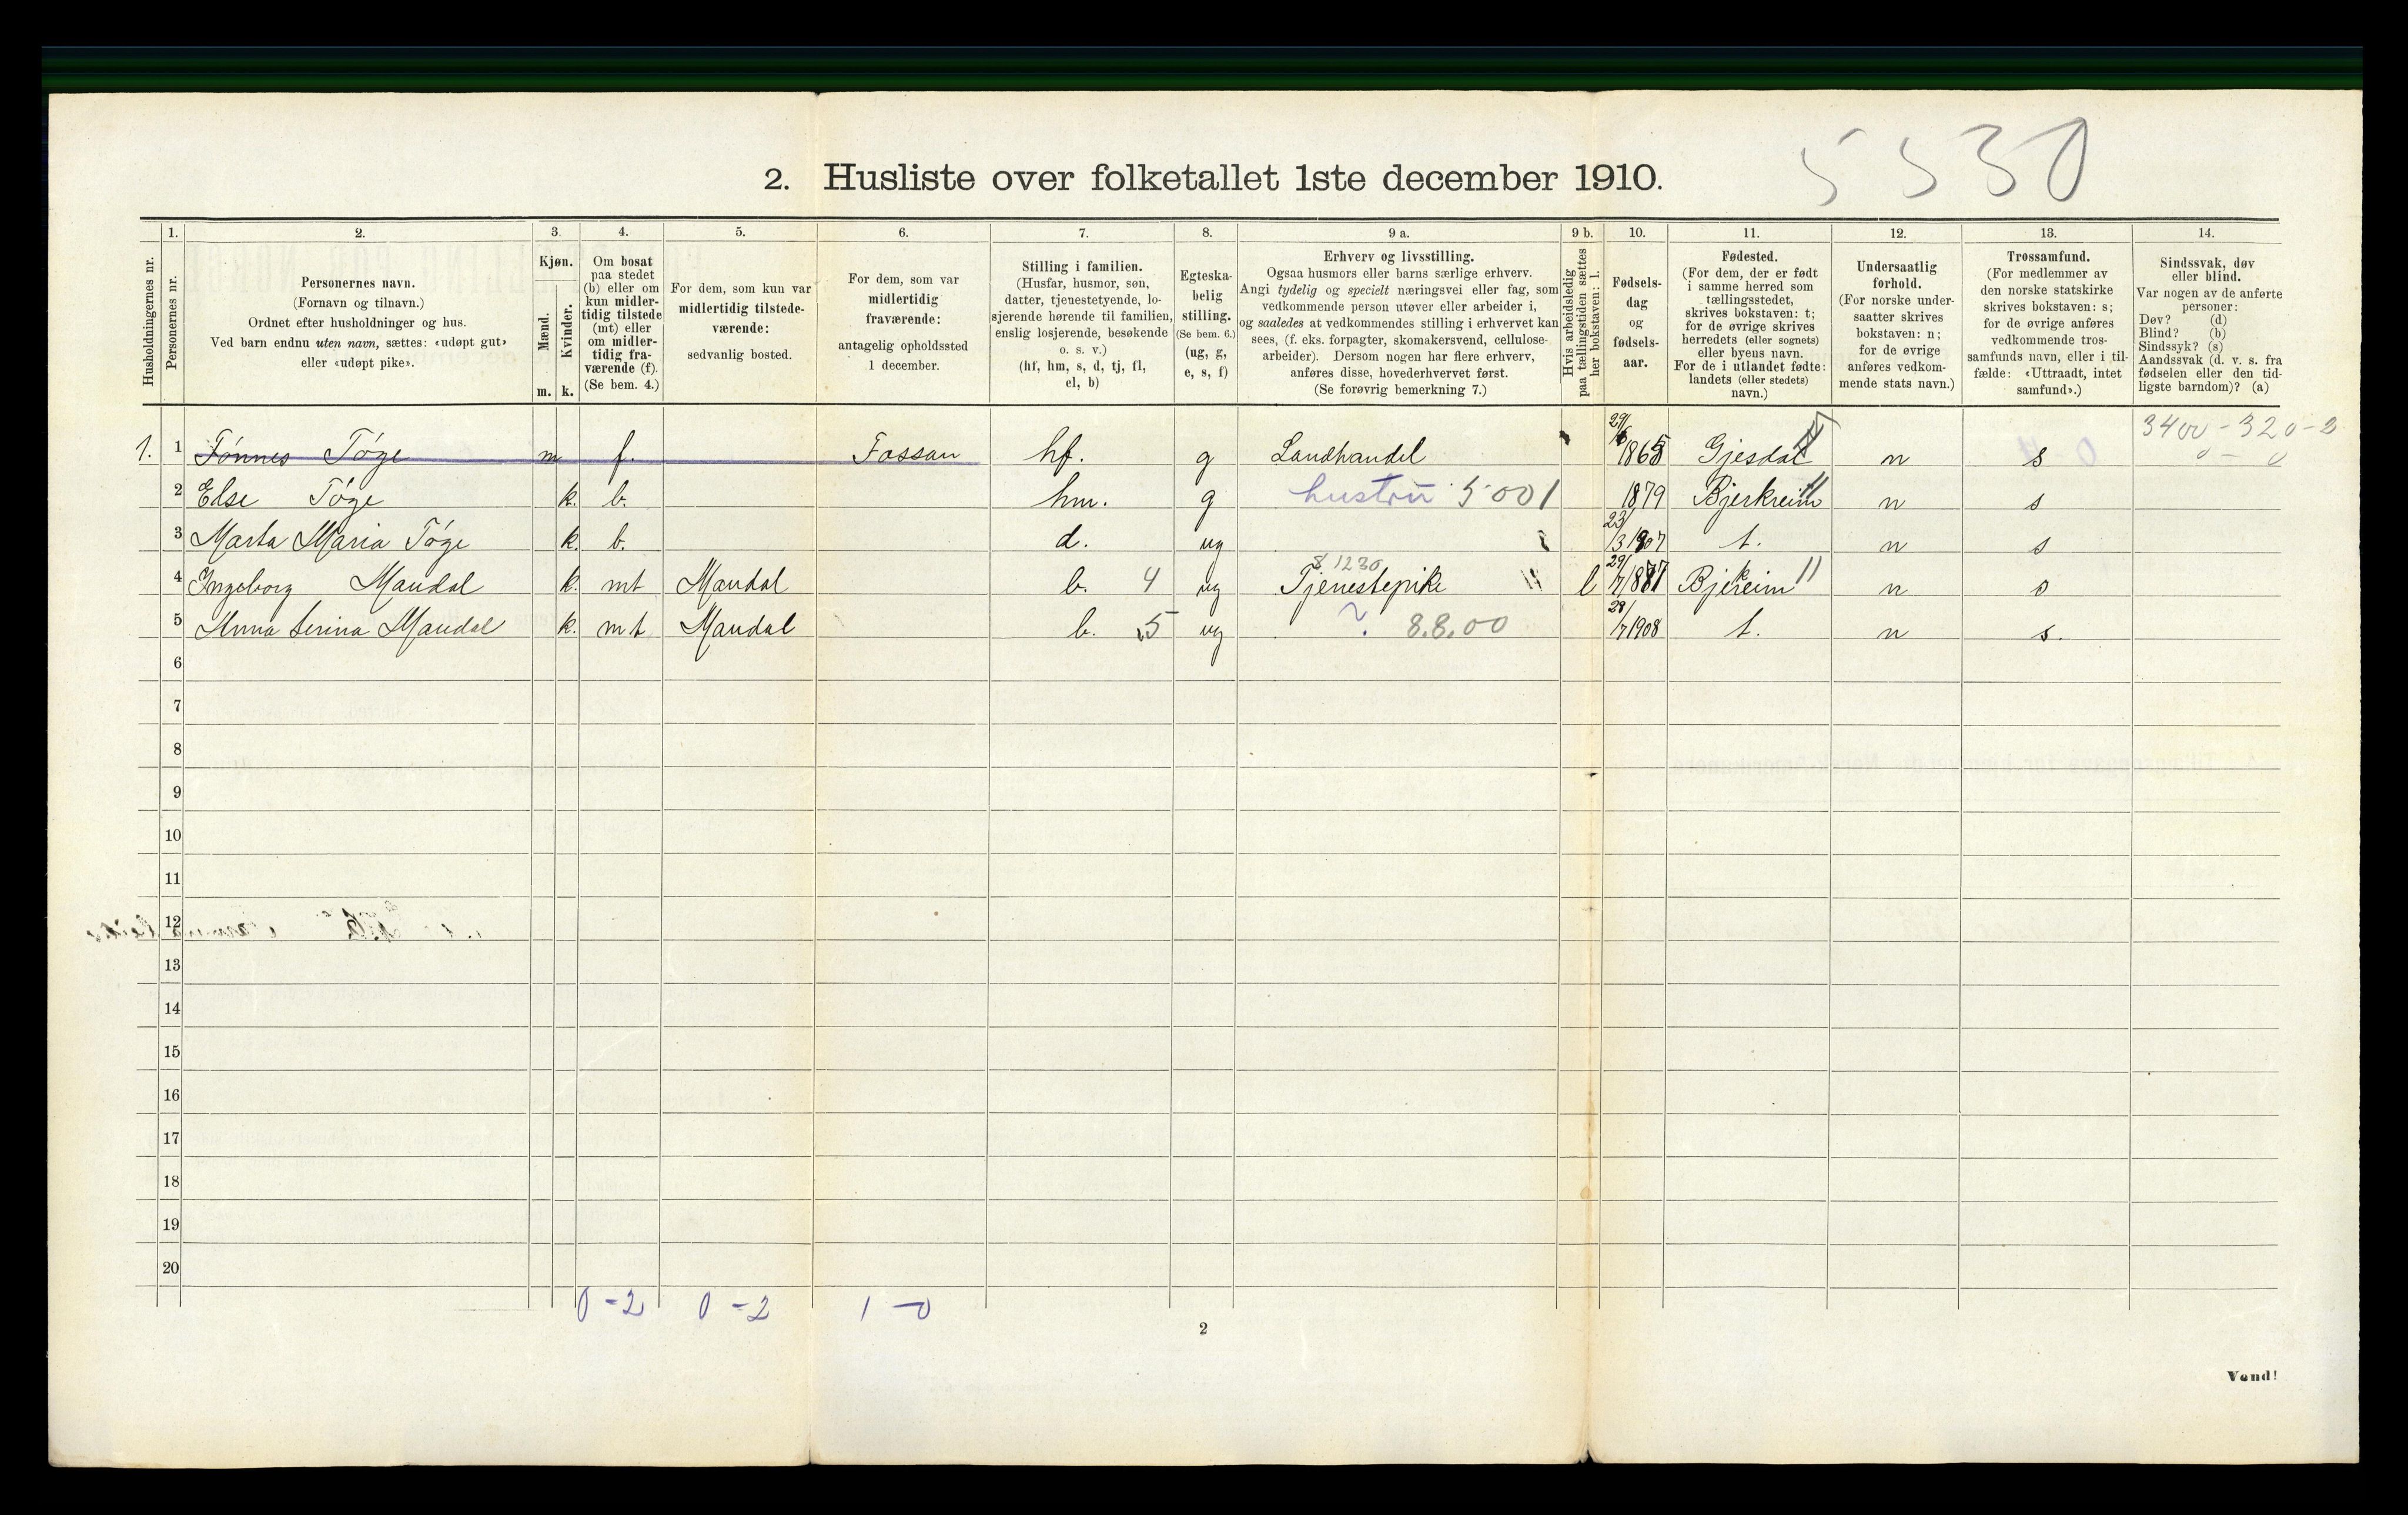 5530
2. Husliste over folketallet 1ste december 1910.
Husholdningernes nr.
1. Personernes nr.
2. Personernes navn. (Fornavn og tilnavn.) Ordnet efter husholdninger og hus. Ved barn endnu uten navn, sættes: «udøpt gut» eller «udøpt pike».
3. Kjøn. Mænd. m. Kvinder. k.
4. Om bosat paa stedet (b) eller om kun midlertidig tilstede (mt) eller om midlertidig fraværende (f). (Se bem. 4.)
5. For dem, som kun var midlertidig tilstedeværende: sedvanlig bosted.
6. For dem, som var midlertidig fraværende: antagelig opholdssted 1 december.
7. Stilling i familien. (Husfar, husmor, søn, datter, tjenestetyende, losjerende hørende til familien, enslig losjerende, besøkende o. s. v.) (hf, hm, s, d, tj, fl, el, b)
8. Egteskabelig stilling. (Se bem. 6.) (ug, g, e, s, f)
9 a. Erhverv og livsstilling. Ogsaa husmors eller barns særlige erhverv. Angi tydelig og specielt næringsvei eller fag, som vedkommende person utøver eller arbeider i, og saaledes at vedkommendes stilling i erhvervet kan sees, (f. eks. forpagter, skomakersvend, cellulosearbeider). Dersom nogen har flere erhverv, anføres disse, hovederhvervet først. (Se forøvrig bemerkning 7.)
9 b. Hvis arbeidsledig paa tællingstiden sættes her bokstaven: l.
10. Fødselsdag og fødselsaar.
11. Fødested. (For dem, der er født i samme herred som tællingsstedet, skrives bokstaven: t; for de øvrige skrives herredets (eller sognets) eller byens navn. For de i utlandet fødte: landets (eller stedets) navn.)
12. Undersaatlig forhold. (For norske undersaatter skrives bokstaven: n; for de øvrige anføres vedkommende stats navn.)
13. Trossamfund. (For medlemmer av den norske statskirke skrives bokstaven: s; for de øvrige anføres vedkommende trossamfunds navn, eller i tilfælde: «Uttraadt, intet samfund».)
14. Sindssvak, døv eller blind. Var nogen av de anførte personer: Døv? (d) Blind? (b) Sindssyk? (s) Aandssvak (d. v. s. fra fødselen eller den tidligste barndom)? (a)
3400-320-2
0-0
1. 1 Tønnes Tøge m f. Fossan hf. g Landhandel 29/6 1865 Gjesdal n s
2 Else Tøge k. b. hm. g hustru 5001 1879 Bjerkreim n s
3 Marta Maria Tøge k. b. d. ug 23/3 1907 t. n s
4 Ingeborg Maudal k. mt Maudal b. 4 ug Tjenestepike 1230 l 29/7 1887 Bjerkreim n s
5 Anna Serina Maudal k. mt Maudal b. 5 ug 8.8.00 28/7 1908 t. n s.
6
7
8
9
10
11
12
13
14
15
16
17
18
19
20
0-2 0-2 1-0
2
Vend!